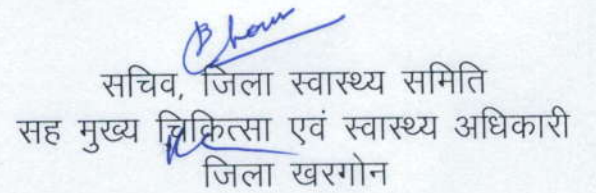 सचिव, जिला स्वास्थ्य समिति
सह मुख्य चिकित्सा एवं स्वास्थ्य अधिकारी
जिला खरगोन